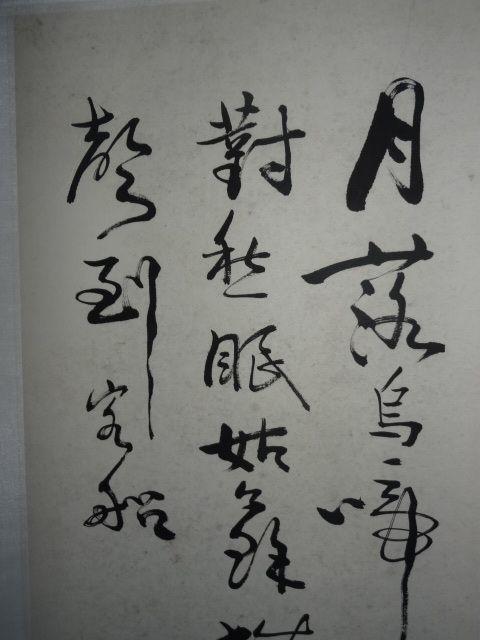 月落烏啼
對愁眠姑蘇
聲到客船